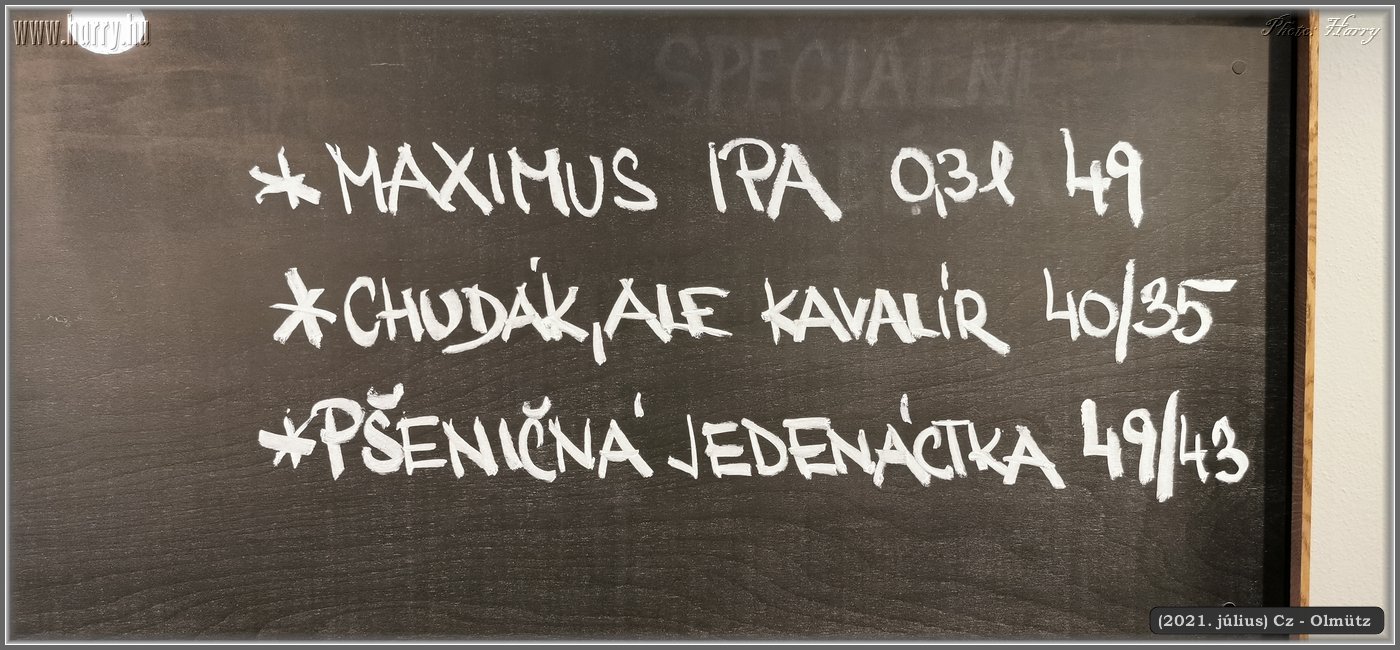 www.harry.hu
Photo: Harry
SPECIÁLNÍ
* MAXIMUS IPA 0,3l 49
* CHUDÁK, ALE KAVALÍR 40/35
* PŠENIČNÁ JEDENÁCTKA 49/43
(2021. július) Cz - Olmütz